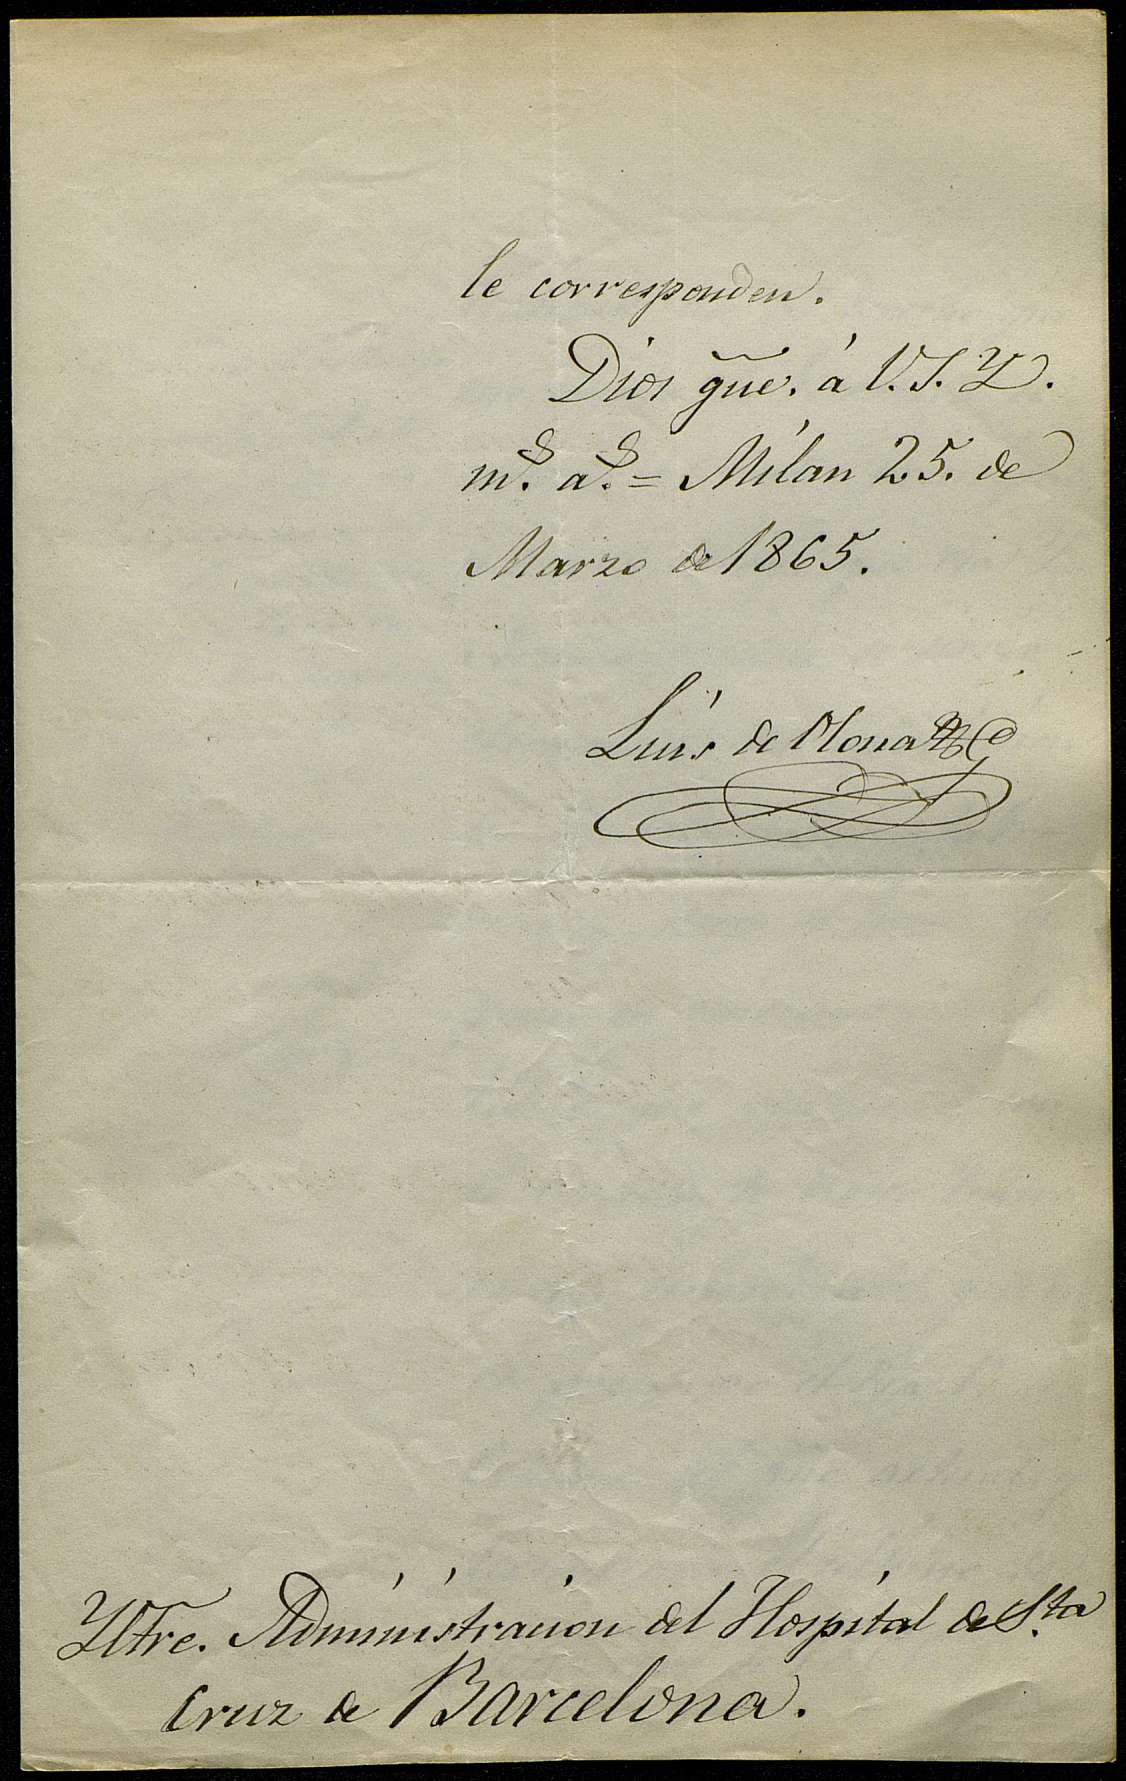 le corresponden.
Dios gue. á V.S.Y.
ms. as. = Milan 25. de
Marzo de 1865.
Luis de Olona
Yltre. Administracion del Hospital de Sta
Cruz de Barcelona.